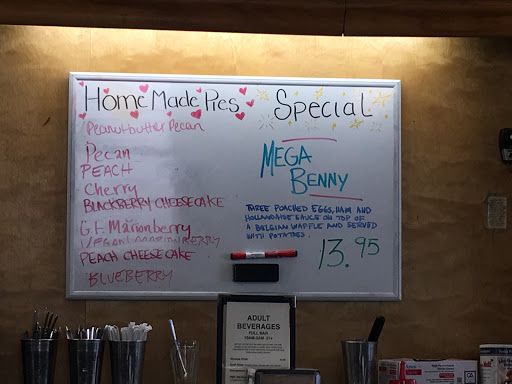 Home Made Pies
Peanutbutter Pecan
Pecan
PEACH
Cherry
BLACKBERRY CHEESECAKE
G.F. Marionberry
VEGAN MARIONBERRY
PEACH CHEESECAKE
BLUEBERRY
Special
MEGA
BENNY
THREE POACHED EGGS, HAM AND
HOLLANDAISE SAUCE ON TOP OF
A BELGIAN WAFFLE AND SERVED
WITH POTATOES.
13.95
ADULT
BEVERAGES
FULL BAR